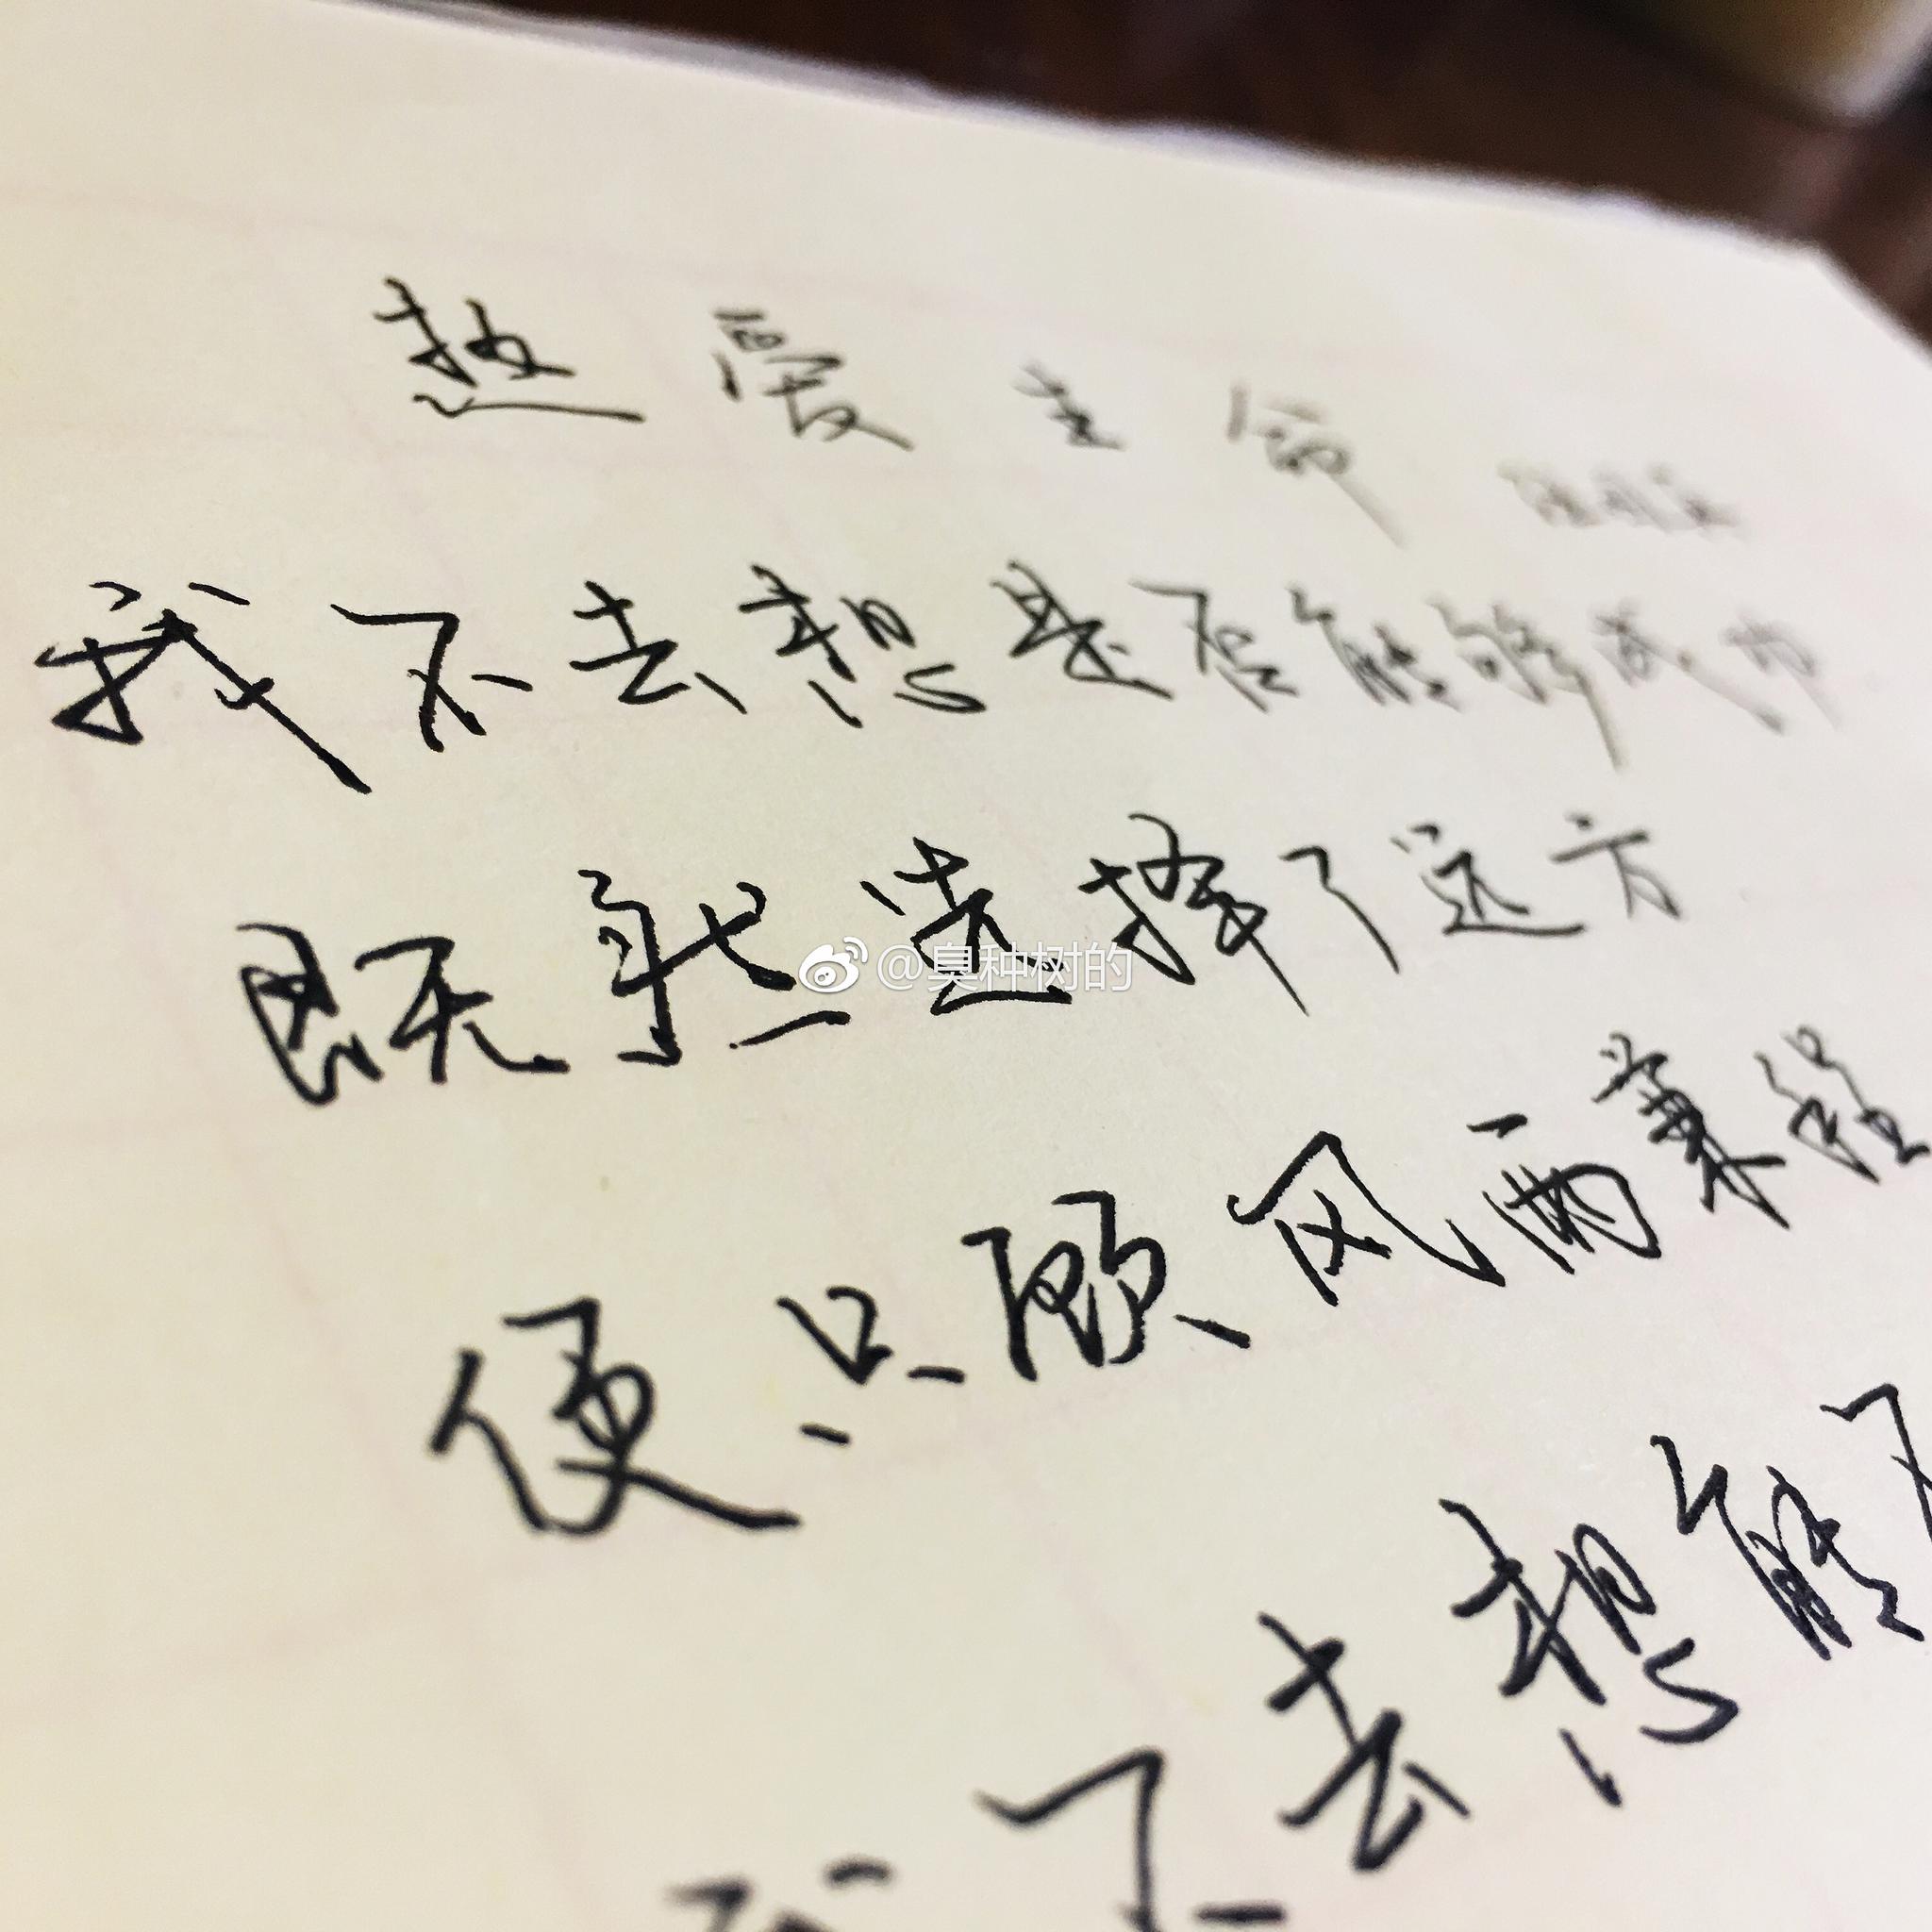 热爱生命
我不去想是否能够成功
既然选择了远方
@臭种树的
便只顾风雨兼程
我不去想能不